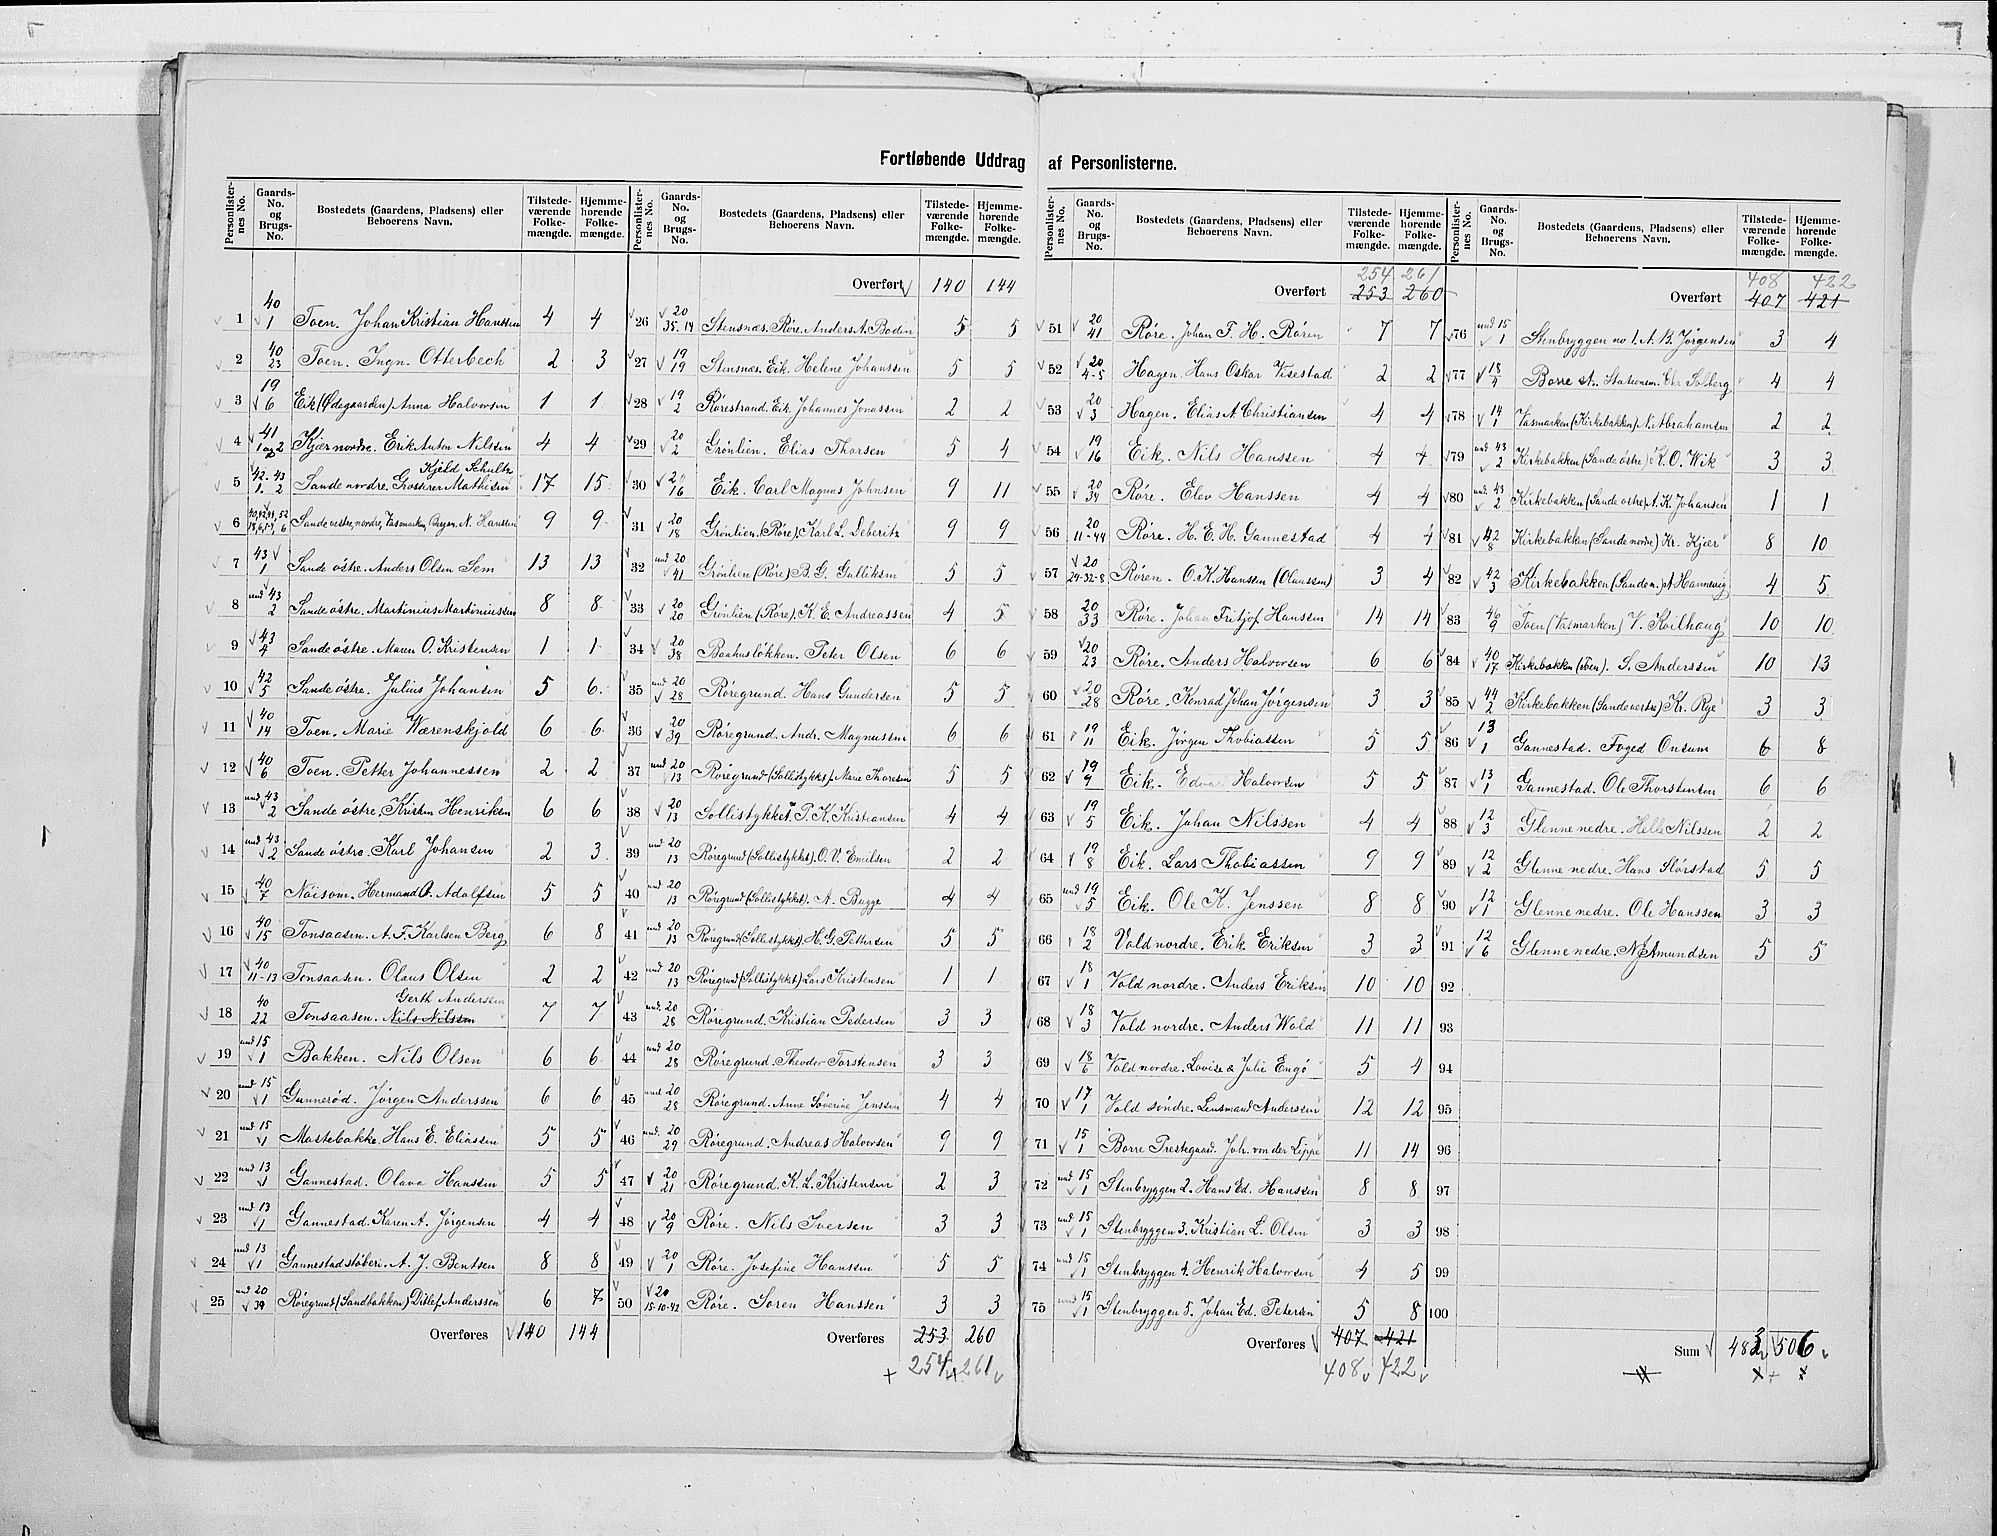 Fortløbende Uddrag af Personlisterne.
Personlister-nes No. Gaards-No. og Brugs-No. Bostedets (Gaardens, Pladsens) eller Beboerens Navn. Tilstede-værende Folke-mængde. Hjemme-hørende Folke-mængde.
1 40/1 Toen. Johan Kristian Hanssen 4 4
2 40/23 Toen. Ingn. Otterbech 2 3
3 19/6 Eik (Ødegaarden) Anna Halvorsen 1 1
4 41/1 og 2 Kjær nordre. Erik Anton Nilsen 4 4
Kjeld Schultz
5 42-43/1-2 Sande nordre. Grosserer Mathisen 17 15
6 Sande vestre, nordre, Vasmarken, Bryn. N. Hanssen 9 9
7 43/1 Sande østre. Anders Olsen Sem 13 13
8 und 43/2 Sande østre. Martinius Martiniussen 8 8
9 43/4 Sande østre. Maren O. Kristensen 1 1
10 42/5 Sande østre. Julius Johansen 5 6
11 40/14 Toen. Marie Wærenskjold 6 6
12 40/6 Toen. Petter Johannessen 2 2
13 und 43/2 Sande østre. Kristen Henriksen 6 6
14 und 43/2 Sande østre. Karl Johansen 2 3
15 40/7 Nöisom. Hermand O. Adolfsen 5 5
16 40/15 Tonsaasen. A. F. Karlsen Berg 6 8
17 40/11-13 Tonsaasen. Olaus Olsen 2 2
Gerth Andersen
18 40/22 Tonsaasen. Nils Nilssen 7 7
19 und 15/1 Bakken. Nils Olsen 6 6
20 und 15/1 Gunnerød. Jørgen Anderssen 6 6
21 und 15/1 Mastebakke. Hans E. Eliassen 5 5
22 und 13/1 Gannestad. Olava Hanssen 5 5
23 und 13/1 Gannestad. Karen A. Jørgensen 4 4
24 und 13/1 Gannestadstøberi. A. J. Bentsen 8 8
25 und 20/39 Røregrund (Sandbakken) Ditlef Anderssen 6 7
Overføres 140 144
Personlister-nes No. Gaards-No. og Brugs-No. Bostedets (Gaardens, Pladsens) eller Beboerens Navn. Tilstede-værende Folke-mængde. Hjemme-hørende Folke-mængde.
Overført 140 144
26 20/35.14 Stensnæs. Røre. Anders A. Bodin 5 5
27 19/19 Stensnæs. Eik. Helene Johanssen 5 5
28 19/2 Rørestrand. Eik. Johannes Jonassen 2 2
29 20/2 Grønlien. Elias Thorsen 5 4
30 20/16 Eik. Carl Magnus Johnsen 9 11
31 20/18 Grønlien. (Røre). Karl L. Deberitz 9 9
32 und 20/41 Grønlien (Røre) B. G. Gulliksen 5 5
33 20/20 Grønlien (Røre). K. E. Andreassen 4 5
34 20/38 Baahusløkken. Peter Olsen 6 6
35 und 20/28 Røregrund. Hans Gundersen 5 5
36 20/39 Røregrund. Andr. Magnussen 6 6
37 und 20/13 Røregrund (Sollistykket) Marie Thoresen 5 5
38 20/13 Sollistykket. P. K. Kristiansen 4 4
39 und 20/13 Røregrund (Sollistykket). O. V. Emilsen 2 2
40 und 20/13 Røregrund (Sollistykket). A. Bugge 4 4
41 und 20/13 Røregrund (Sollistykket). H. G. Pettersen 5 5
42 und 20/13 Røregrund (Sollistykket) Lars Kristensen 1 1
43 und. 20/28 Røregrund. Kristian Pedersen 3 3
44 und 20/28 Røregrund. Theodor Torstensen 3 3
45 und 20/28 Røregrund. Anne Søverine Jenssen 4 4
46 und. 20/29 Røregrund. Andreas Halvorsen 9 9
47 20/21 Røregrund. K. L. Kristensen 2 3
48 20/9 Røre. Nils Iversen 3 3
49 20/1 Røre. Josefine Hanssen 5 5
50 20/15-10-42 Røre. Søren Hanssen 3 3
Overføres 253 260
254 261
Personlister-nes No. Gaards-No. og Brugs-No. Bostedets (Gaardens, Pladsens) eller Beboerens Navn. Tilstede-værende Folke-mængde. Hjemme-hørende Folke-mængde.
254 261
Overført 253 260
51 20/41 Røre. Johan F. H. Røren 7 7
52 20/4-5 Hagen. Hans Oskar Visestad 2 2
53 20/3 Hagen. Elias A. Christiansen 4 4
54 19/16 Eik. Nils Hanssen 4 4
55 20/34 Røre. Elev Hanssen 4 4
56 20/11-44 Røre. H. E. H. Gannestad 4 4
57 20/29-32-8 Røren. O. K. Hanssen (Olaussen) 3 4
58 20/33 Røre. Johan Fritjof Hanssen 14 14
59 20/23 Røre. Anders Halvorsen 6 6
60 20/28 Røre. Konrad Johan Jørgensen 3 3
61 19/11 Eik. Jørgen Thobiassen 5 5
62 19/9 Eik. Halvorsen 5 5
63 19/5 Eik. Johan Nilssen 4 4
64 19/8 Eik. Lars Thobiassen 9 9
65 und 19/5 Eik. Ole K. Jenssen 8 8
66 18/2 Vold nordre. Erik Eriksen 3 3
67 18/1 Vold nordre. Anders Eriksen 10 10
68 18/3 Vold nordre. Anders Wold 11 11
69 18/6 Vold nordre. Lovise & Julie Engø 5 4
70 17/1 Vold søndre. Lensmand Anderssen 12 12
71 15/1 Borre Prestegaard. Joh. von der Lippe 11 14
72 und 15/1 Stenbryggen 2. Hans Ed. Hanssen 8 8
73 und 15/1 Stenbryggen 3. Kristian L. Olsen 3 3
74 und 15/1 Stenbryggen 4. Henrik Halvorsen 4 5
75 und 15/1 Stenbryggen 5. Johan Ed. Petersen 5 8
Overføres 407 421
408 422
Personlister-nes No. Gaards-No. og Brugs-No. Bostedets (Gaardens, Pladsens) eller Beboerens Navn. Tilstede-værende Folke-mængde. Hjemme-hørende Folke-mængde.
408 422
Overført 407 421
76 und 15/1 Stenbryggen no 1. A. B. Jørgensen 3 4
77 18/4 Borre st. Stationsm. Chr. Solberg 4 4
78 14/1 Vasmarken (Kirkebakken) N. Abrahamsen 2 2
79 und 43/2 Kirkebakken (Sande østre) K. O. Wik 3 3
80 und. 43/2 Kirkebakken (Sande østre) A. K. Johansen 1 1
81 42/8 Kirkebakken (Sande nordre) Kr. Kjær 8 10
82 42/3 Kirkebakken (Sande n.) A Hannevig 4 5
83 40/9 Toen (Vasmarken) V. Kvilhaug 10 10
84 40/17 Kirkebakken (Toen). S. Anderssen 10 13
85 44/2 Kirkebakken (Sande vestre) Kr. Rye 3 3
86 13/1 Gannestad. Foged Onsum 6 8
87 13/1 Gannestad. Ole Thorstensen 6 6
88 12/3 Glenne nedre. Helle Nilssen 2 2
89 12/2 Glenne nedre. Hans Slørstad 5 5
90 12/1 Glenne nedre. Ole Hanssen 3 3
91 12/6 Glenne nedre. N. Amundsen 5 5
92
93
94
95
96
97
98
99
100
Sum 483 506